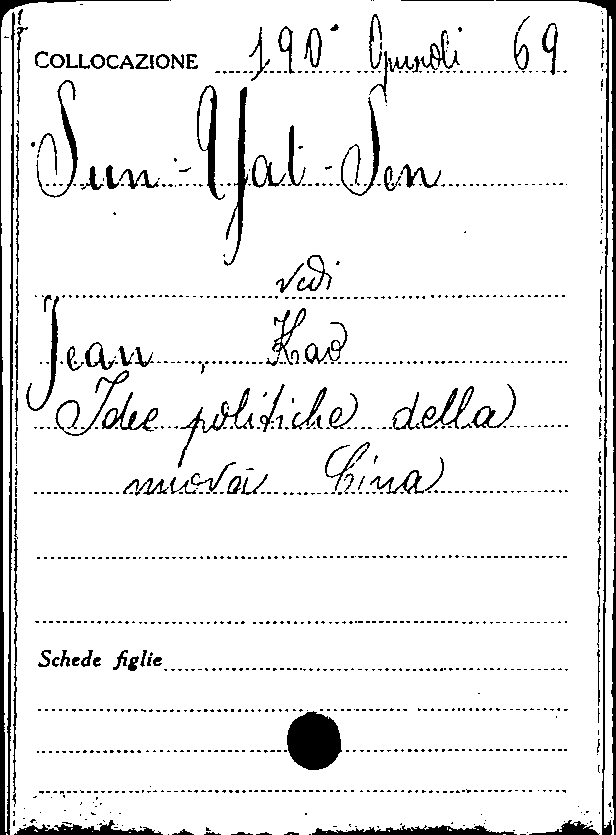 COLLOCAZIONE 190° Opuscoli 69
Sun-Yat-Sen
vedi
Jean, Kao
Idee politiche della
nuova Cina
Schede figlie